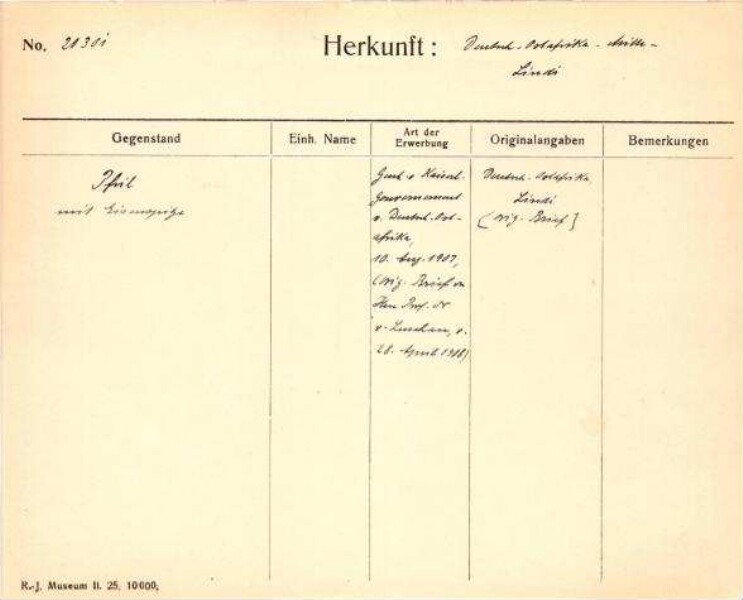 No. 2130i
Herkunft: Deutsch-Ostafrika -
Lindi
Gegenstand
Einh. Name
Art der
Erwerbung
Originalangaben
Bemerkungen
Pfeil
mit Eisenspitze
Gesch. v. Kaiserl.
Gouvernement
v. Deutsch-Ost-
afrika,
10. Aug. 1907,
(Orig. Brief von
Herr Prof. Dr
v. Luschan, v.
28. April 1908)
Deutsch-Ostafrika,
Lindi
(Orig. Brief)
R.-J. Museum II. 25. 10000,